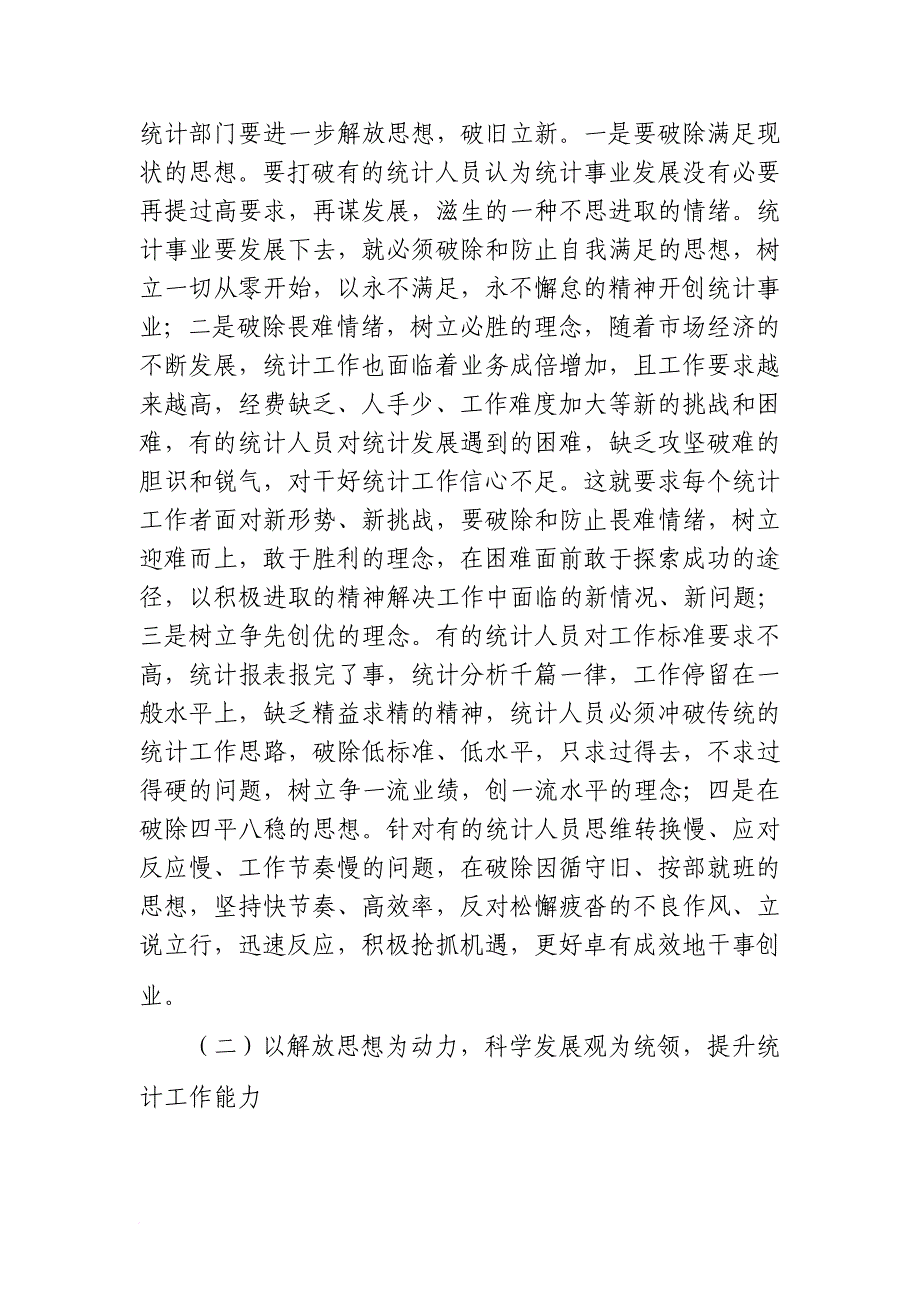 统计部门要进一步解放思想，破旧立新。一是要破除满足现
状的思想。要打破有的统计人员认为统计事业发展没有必要
再提过高要求，再谋发展，滋生的一种不思进取的情绪。统
计事业要发展下去，就必须破除和防止自我满足的思想，树
立一切从零开始，以永不满足，永不懈怠的精神开创统计事
业；二是破除畏难情绪，树立必胜的理念，随着市场经济的
不断发展，统计工作也面临着业务成倍增加，且工作要求越
来越高，经费缺乏、人手少、工作难度加大等新的挑战和困
难，有的统计人员对统计发展遇到的困难，缺乏攻坚破难的
胆识和锐气，对干好统计工作信心不足。这就要求每个统计
工作者面对新形势、新挑战，要破除和防止畏难情绪，树立
迎难而上，敢于胜利的理念，在困难面前敢于探索成功的途
径，以积极进取的精神解决工作中面临的新情况、新问题；
三是树立争先创优的理念。有的统计人员对工作标准要求不
高，统计报表报完了事，统计分析千篇一律，工作停留在一
般水平上，缺乏精益求精的精神，统计人员必须冲破传统的
统计工作思路，破除低标准、低水平，只求过得去，不求过
得硬的问题，树立争一流业绩，创一流水平的理念；四是在
破除四平八稳的思想。针对有的统计人员思维转换慢、应对
反应慢、工作节奏慢的问题，在破除因循守旧、按部就班的
思想，坚持快节奏、高效率，反对松懈疲沓的不良作风、立
说立行，迅速反应，积极抢抓机遇，更好卓有成效地干事创
业。
（二）以解放思想为动力，科学发展观为统领，提升统
计工作能力